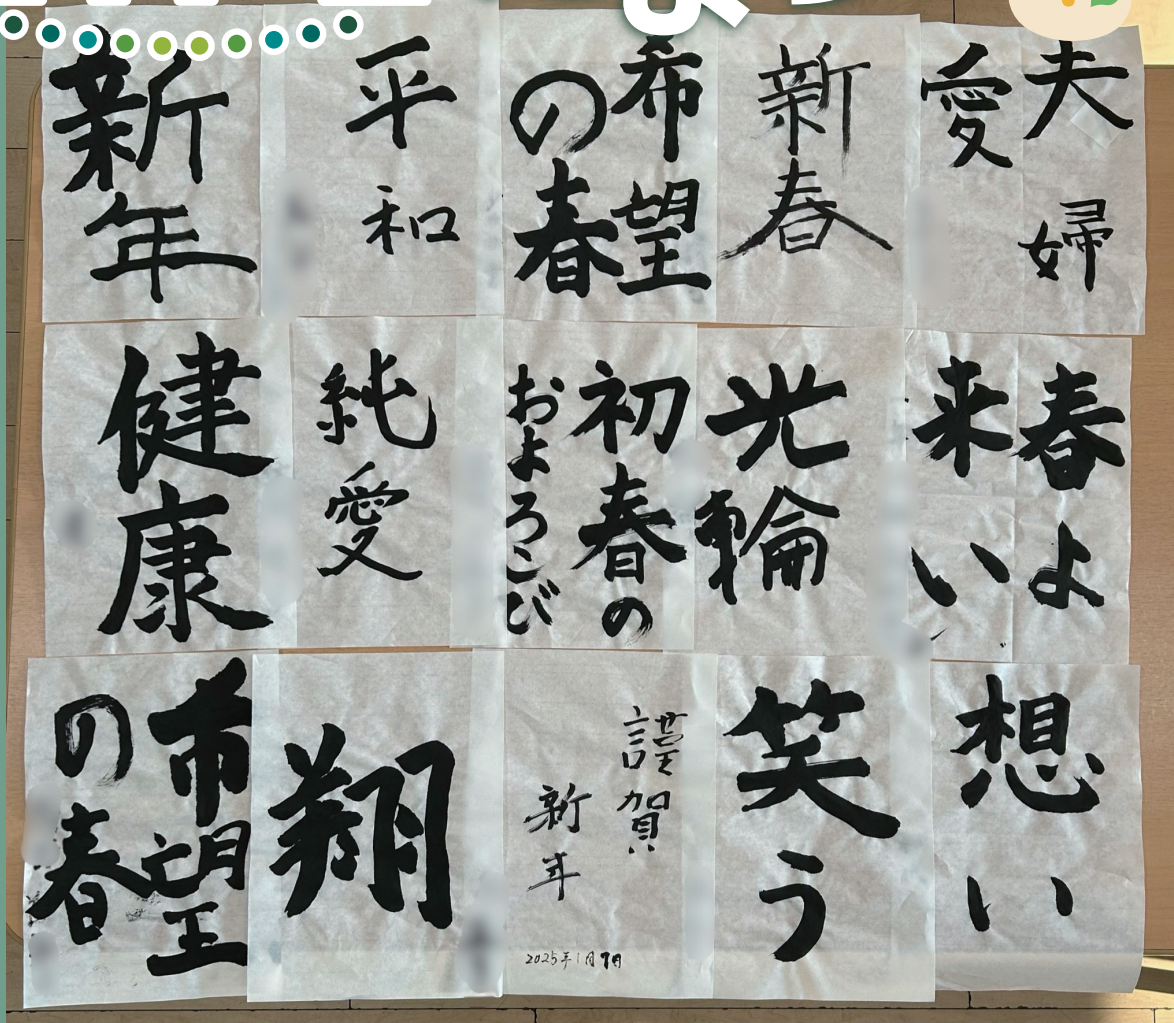 よ
新年
平和
希望
の春
新春
夫婦
愛
健康
純愛
初春の
およろこび
光輪
春よ
来い
希望
の春
翔
謹賀
新年
2025年1月7日
笑う
想い